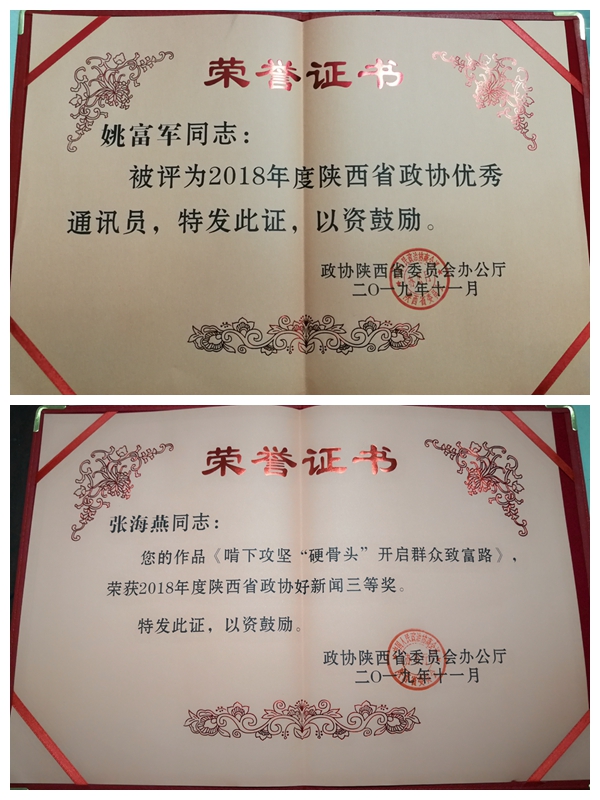 荣誉证书
姚富军同志：
被评为2018年度陕西省政协优秀
通讯员，特发此证，以资鼓励。
政协陕西省委员会办公厅
二〇一九年十一月
荣誉证书
张海燕同志：
您的作品《啃下攻坚“硬骨头”开启群众致富路》，
荣获2018年度陕西省政协好新闻三等奖。
特发此证，以资鼓励。
政协陕西省委员会办公厅
二〇一九年十一月